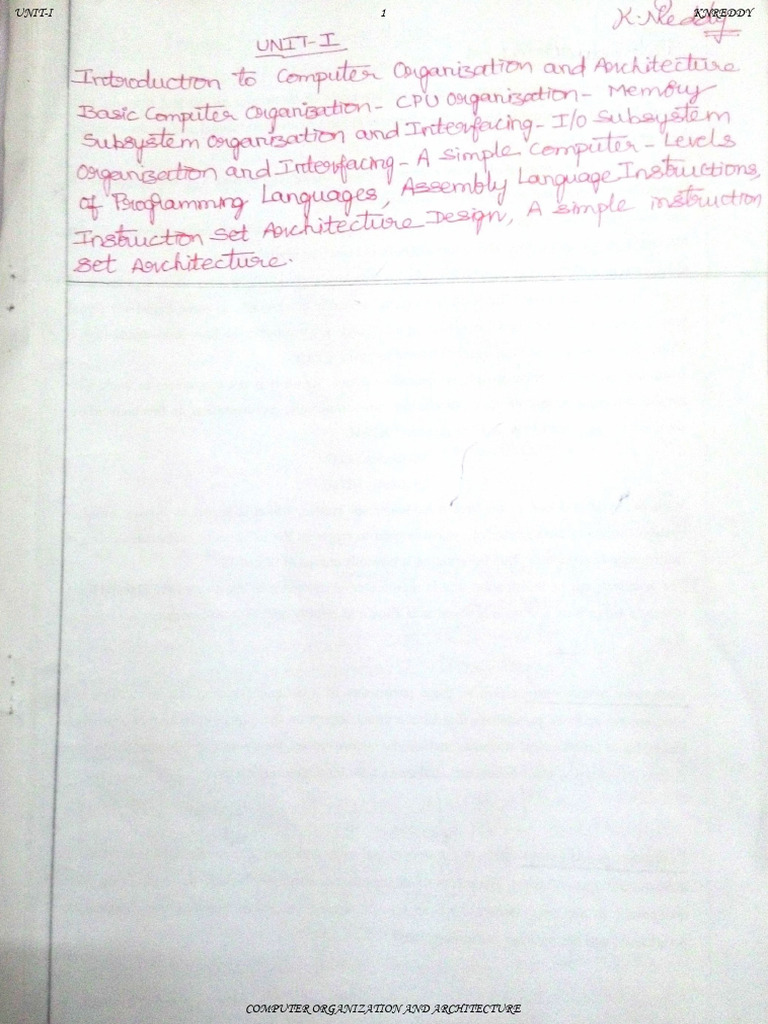 UNIT-I 1 KNREDDY
K. N. Reddy
UNIT-I
Introduction to Computer Organization and Architecture
Basic Computer Organization - CPU Organization - Memory
Subsystem Organization and Interfacing - I/O Subsystem
Organization and Interfacing - A Simple Computer - Levels
of Programming Languages, Assembly Language Instructions,
Instruction Set Architecture Design, A simple instruction
Set Architecture.
COMPUTER ORGANIZATION AND ARCHITECTURE